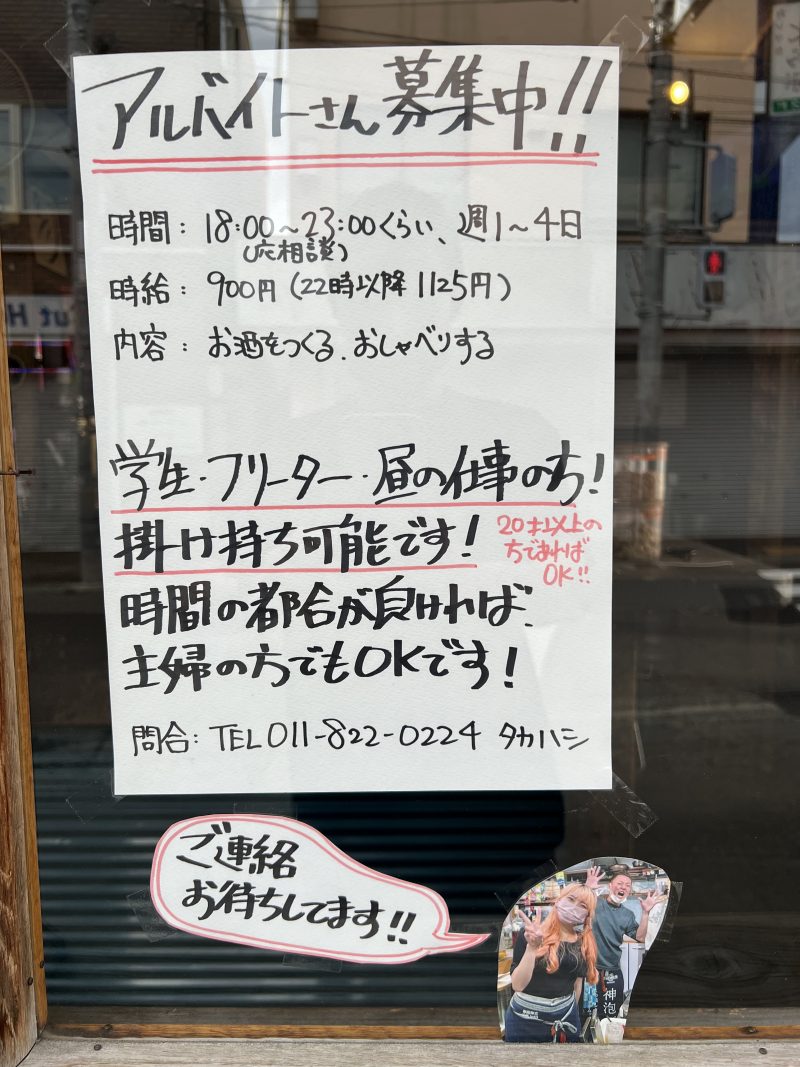 アルバイトさん募集中!!
時間：18:00〜23:00くらい、週1〜4日
(応相談)
時給：900円(22時以降1125円)
内容：お酒をつくる、おしゃべりする
学生・フリーター・昼の仕事のち!
掛け持ち可能です!
20才以上の
方であれば
OK!!
時間の都合が良ければ、
主婦の方でもOKです!
問合：TEL011-822-0224 タカハシ
ご連絡
お待ちしてます!!
神泡